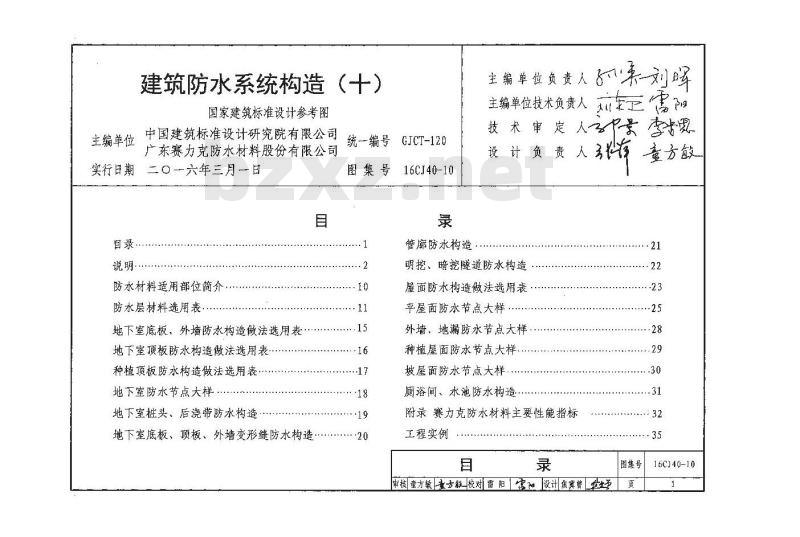 建筑防水系统构造（十）
国家建筑标准设计参考图
主编单位 中国建筑标准设计研究院有限公司
广东赛力克防水材料股份有限公司
统一编号 GJCT-120
实行日期 二〇一六年三月一日
图集号 16CJ40-10
主编单位负责人 刘晖
主编单位技术负责人 雷阳
技术审定人
设计负责人 童方敏
bzxz.net
目 录
目录 1
说明 2
防水材料适用部位简介 10
防水层材料选用表 11
地下室底板、外墙防水构造做法选用表 15
地下室顶板防水构造做法选用表 16
种植顶板防水构造做法选用表 17
地下室防水节点大样 18
地下室桩头、后浇带防水构造 19
地下室底板、顶板、外墙变形缝防水构造 20
管廊防水构造 21
明挖、暗挖隧道防水构造 22
屋面防水构造做法选用表 23
平屋面防水节点大样 25
外墙、地漏防水节点大样 28
种植屋面防水节点大样 29
坡屋面防水节点大样 30
厕浴间、水池防水构造 31
附录 赛力克防水材料主要性能指标 32
工程实例 35
目 录 图集号 16CJ40-10
审核 童方敏 童方敏 校对 雷阳 雷阳 设计 页 1